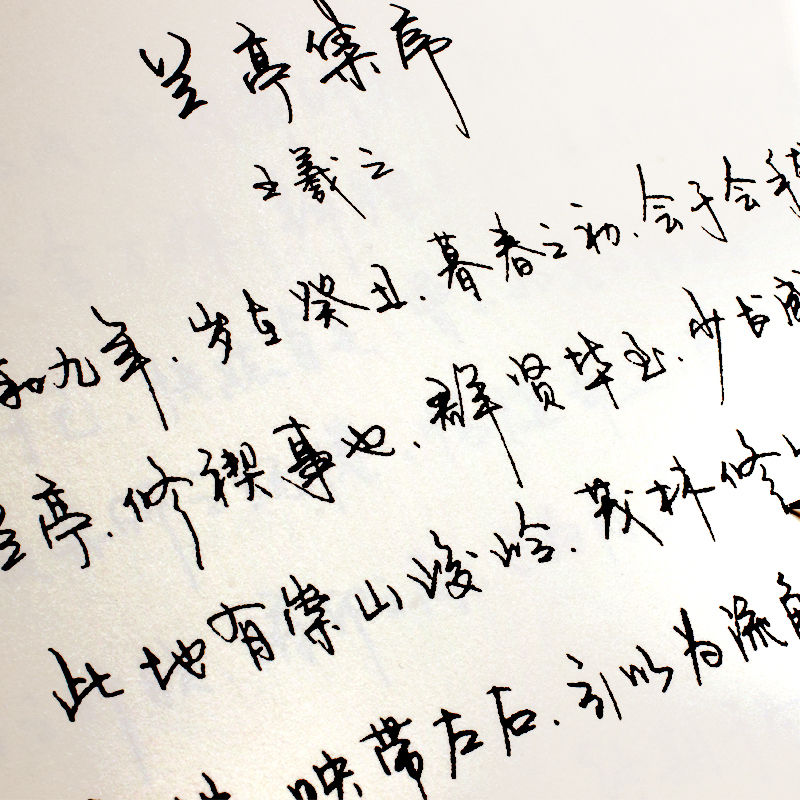 兰亭集序
王羲之
和九年.岁在癸丑.暮春之初.会于会稽
兰亭.修禊事也.群贤毕至.少长咸
此地有崇山峻岭.茂林修
映带左右.引以为流觞